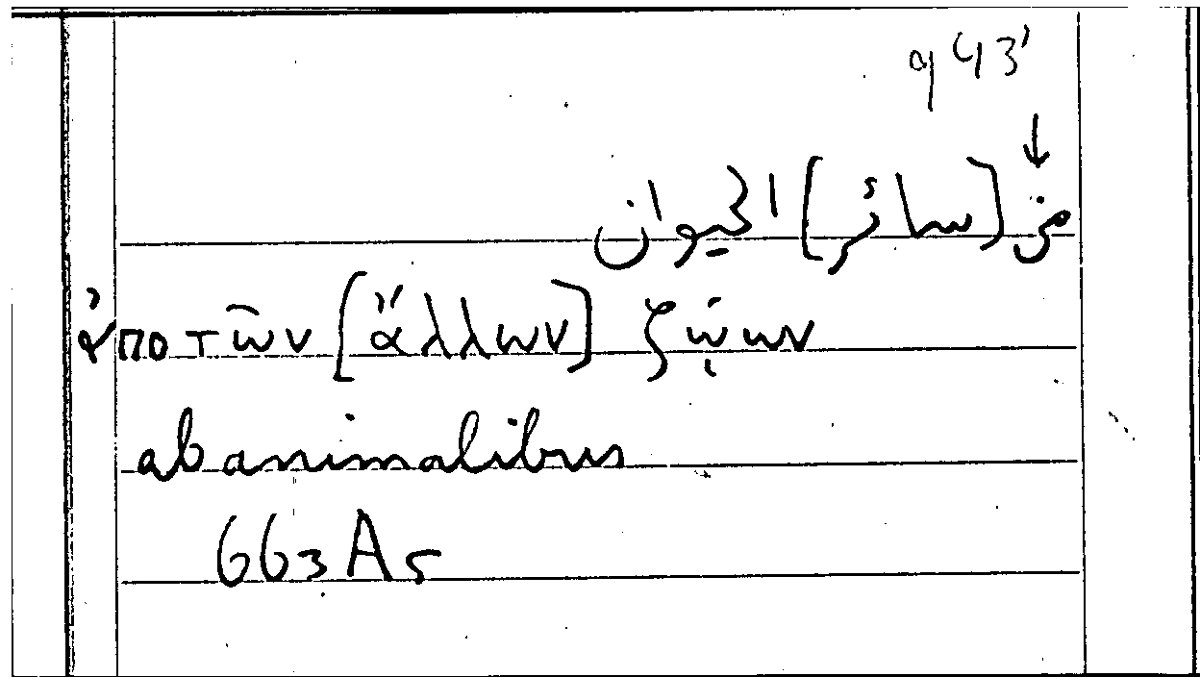 943'
↓
من [سائر] الحيوان
ἀπο τῶν [ἄλλων] ζῴων
ab animalibus
663 A 5